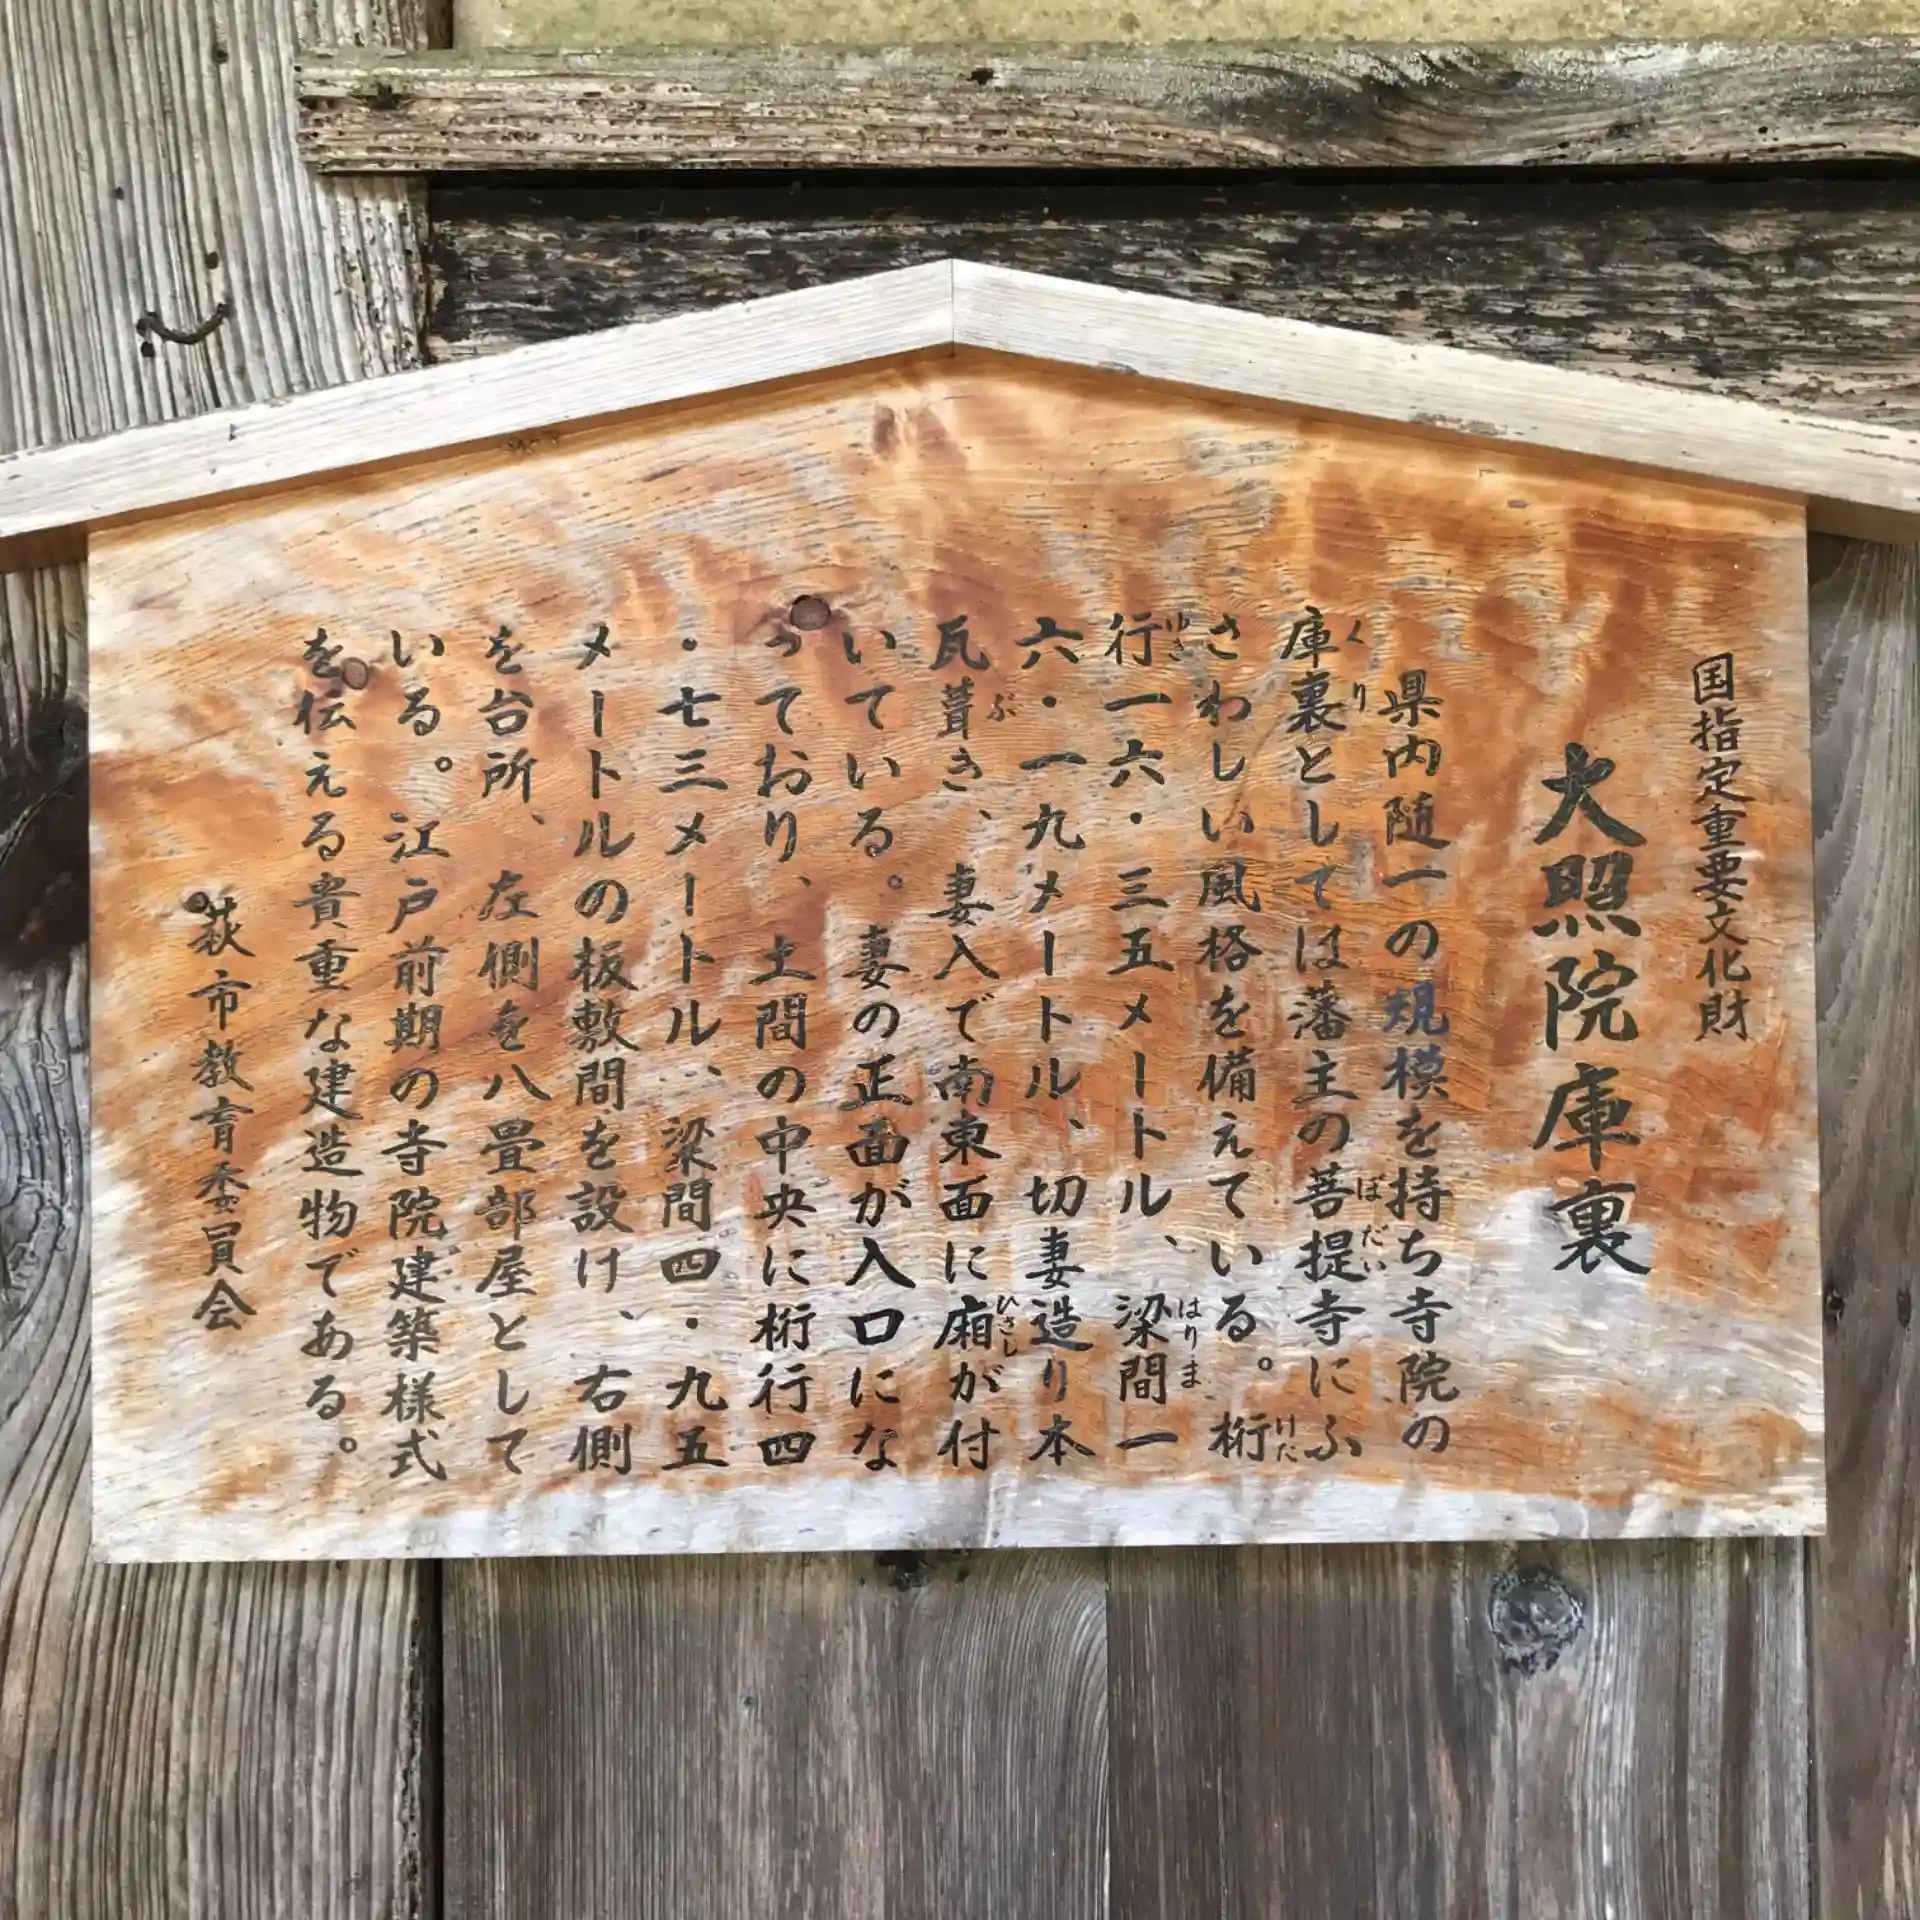 国指定重要文化財
大照院庫裏
県内随一の規模を持ち寺院の
庫裏としては藩主の菩提寺にふ
くり
ぼだい
さわしい風格を備えている。桁
けた
行一六・三五メートル、梁間一
ゆき
はりま
六・一九メートル、切妻造り本
瓦葺き、妻入で南東面に廂が付
ぶ
ひさし
いている。妻の正面が入口にな
っており、土間の中央に桁行四
・七三メートル、梁間四・九五
メートルの板敷間を設け、右側
を台所、左側を八畳部屋として
いる。江戸前期の寺院建築様式
を伝える貴重な建造物である。
萩市教育委員会